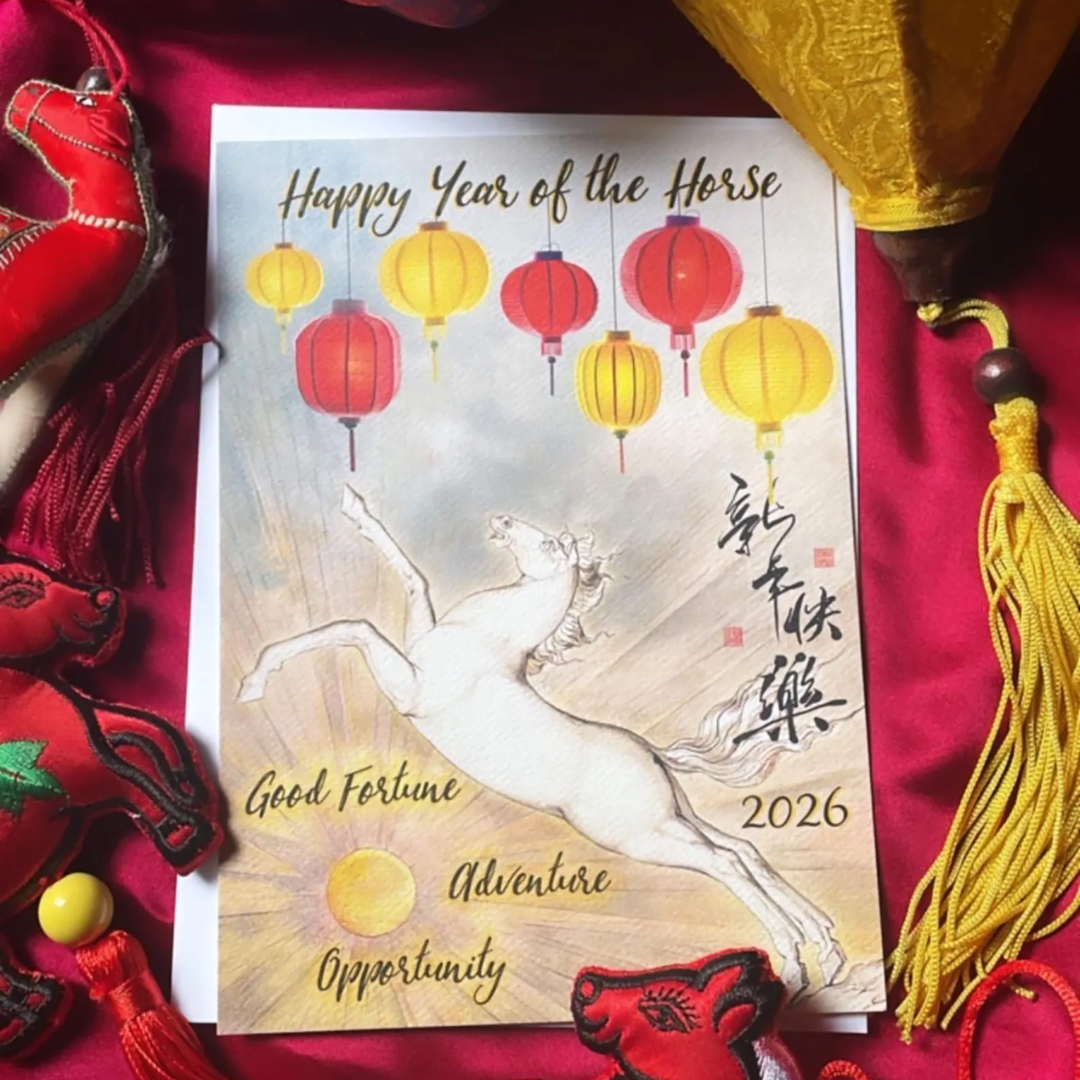 Happy Year of the Horse
新年快樂
2026
Good Fortune
Adventure
Opportunity